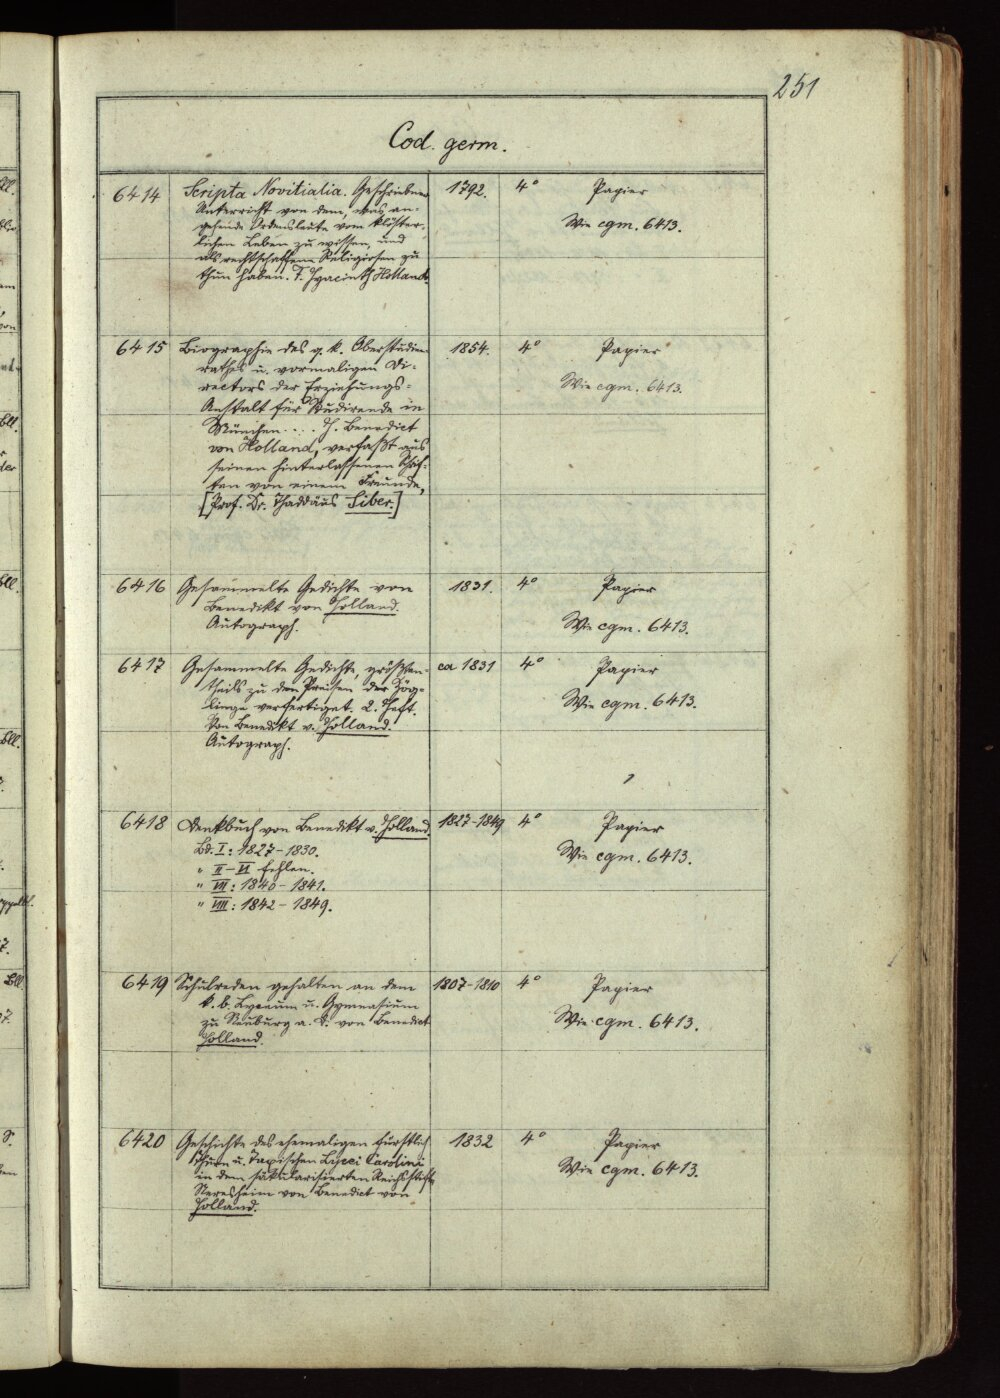 251
Cod. germ.
6414 Scripta Novitialia. Geschriebner 1792. 4° Papier
Unterricht von dem, was an- Wie cgm. 6413.
gehende Ordensleute vom klöster-
lichen Leben zu wissen, und
als rechtschaffene Religiosen zu
thun haben. P. Hyacinth Holland.
6415 Biographie des q. k. Oberstudien- 1854. 4° Papier
rathes u. vormaligen Di- Wie cgm. 6413.
rectors der Erziehungs-
Anstalt für Studirende in
München .... H. Benedict
von Holland, verfaßt aus
seinen hinterlassenen Schrif-
ten von einem Freunde,
[Prof. Dr. Thaddäus Siber.]
6416 Gesammelte Gedichte von 1831. 4° Papier
Benedikt von Holland. Wie cgm. 6413.
Autograph.
6417 Gesammelte Gedichte, größten- ca 1831 4° Papier
theils zu den Preisen der Zög- Wie cgm. 6413.
linge verfertiget. 2. Heft.
Von Benedikt v. Holland.
Autograph.
6418 Denkbuch von Benedikt v. Holland. 1827-1849 4° Papier
Bd. I: 1827-1830. Wie cgm. 6413.
" II-VI fehlen.
" VII: 1840-1841.
" VIII: 1842-1849.
6419 Schulreden gehalten an dem 1807-1810 4° Papier
k. b. Lyceum u. Gymnasium Wie cgm. 6413.
zu Neuburg a. D. von Benedict
Holland.
6420 Geschichte des ehemaligen fürstlich 1832 4° Papier
Thurn u. Taxischen Lycei Carolini Wie cgm. 6413.
in dem säkularisierten Reichsstifte
Neresheim von Benedict von
Holland.